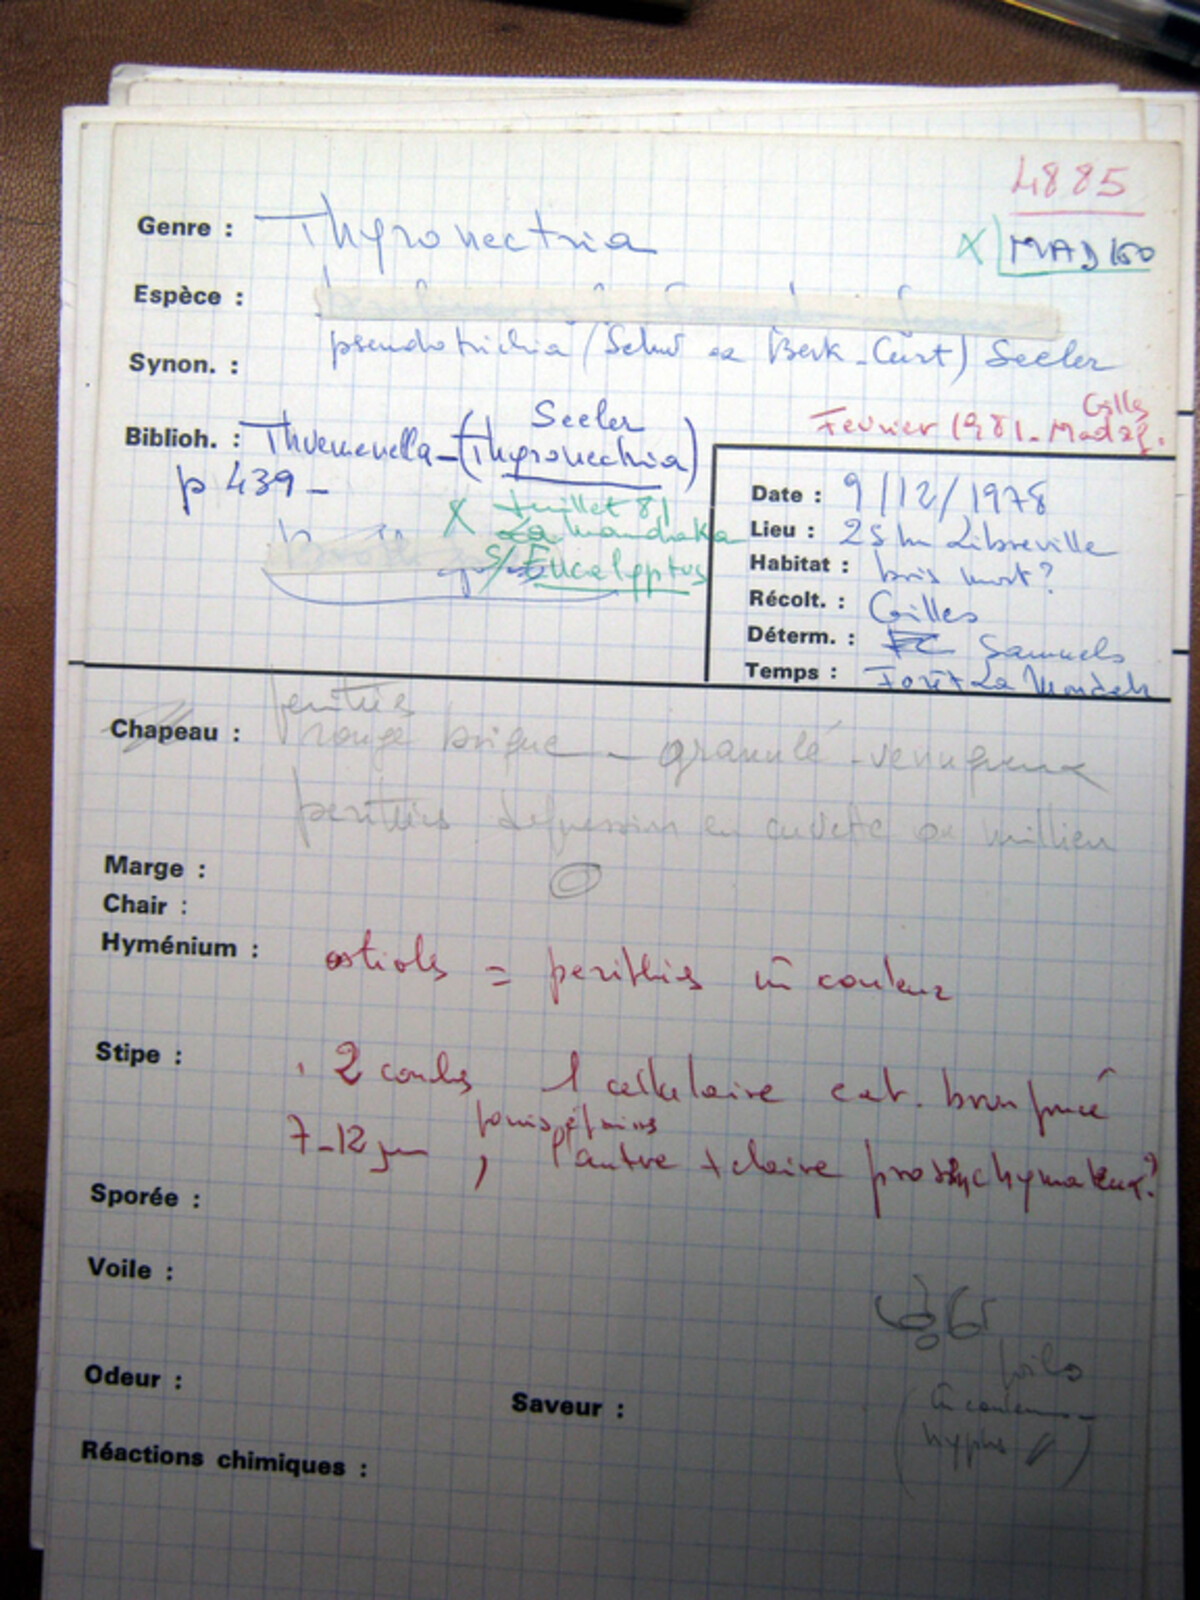 4885
Genre : Thyronectria
X MAD 160
Espèce :
pseudotrichia (Schw Berk_Curt) Seeler
Synon. :
Fevrier 1981_Madag. Gilles
Seeler
Biblioh. : Thuemenella_(Thyronectria)
p 439_
X Juillet 81
La Mandraka
s/ Eucalyptus
Date : 9/12/1978
Lieu : 25 km Libreville
Habitat : bois mort ?
Récolt. : Gilles
Déterm. : Samuels
Temps : Forêt La Mondah
perithéies
Chapeau : rouge brique _ granulé _ verruqueux
perithéies depression en cuvette au millieu
Marge :
Chair :
Hyménium : ostiols = perithéies m̄ couleur
Stipe : 2 couches 1 cellulaire ext. brun foncé
7_12 µm , l'autre + claire prosenchymateux ?
Sporée :
Voile :
poils
Odeur :
(m̄ couleur
Saveur :
hyphes )
Réactions chimiques :